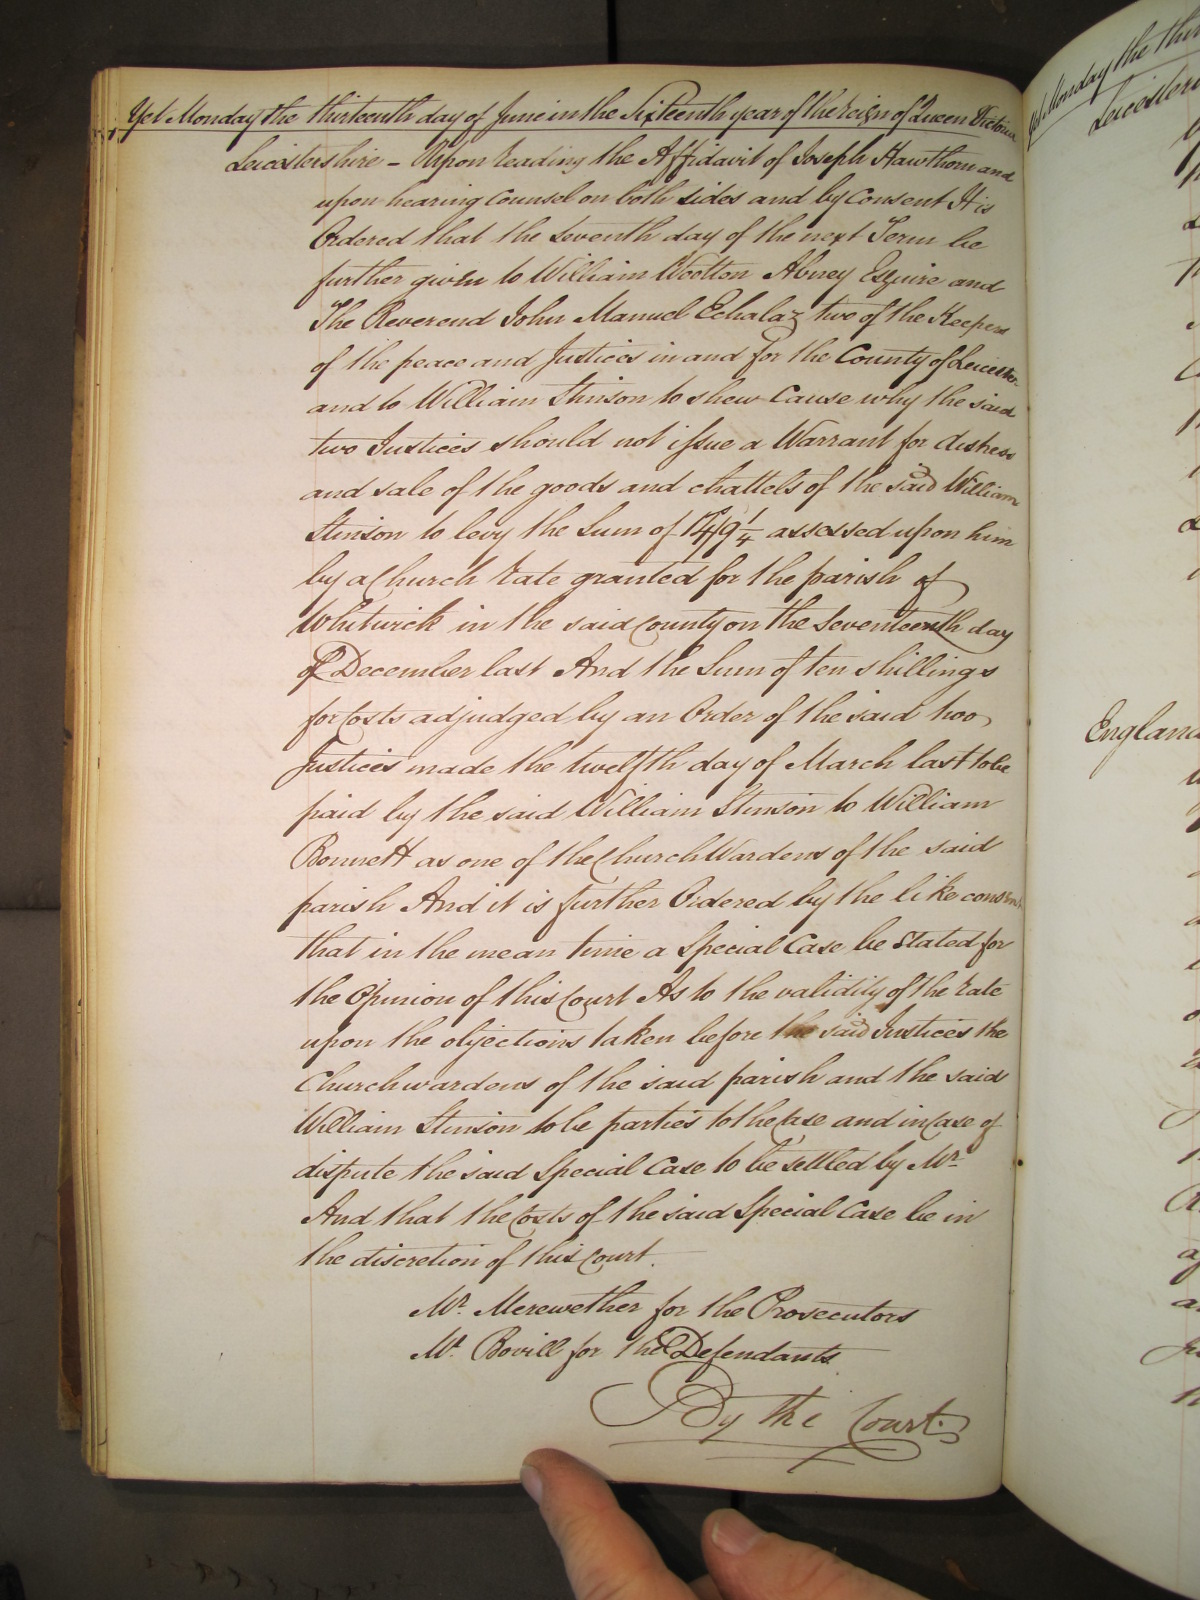 Yet Monday the thirteenth day of June in the Sixteenth year of the reign of Queen Victoria
Leicestershire – Upon reading the Affidavit of Joseph Hawthorn and
upon hearing Counsel on both sides and by consent It is
Ordered that the seventh day of the next Term be
further given to William Wootton Abney Esquire and
The Reverend John Manuel Echalaz two of the Keepers
of the peace and Justices in and for the County of Leicester
and to William Stinson to shew Cause why the said
two Justices should not issue a Warrant for distress
and sale of the goods and chattels of the said William
Stinson to levy the Sum of 14/9 1/4 assessed upon him
by a Church rate granted for the parish of
Whitwick in the said County on the Seventeenth day
of December last And the Sum of ten shillings
for Costs adjudged by an Order of the said two
Justices made the twelfth day of March last to be
paid by the said William Stinson to William
Bonnett as one of the Church Wardens of the said
parish And it is further Ordered by the like consent
that in the mean time a Special Case be stated for
the Opinion of this Court As to the validity of the rate
upon the objections taken before the said Justices the
Churchwardens of the said parish and the said
William Stinson to be parties to the Case and in Case of
dispute the said Special Case to be settled by Mr.
And that the Costs of the said Special Case be in
the discretion of this Court.
Mr. Merewether for the Prosecutors
Mr. Bovill for the Defendants
By the Court.
Yet Monday the
Leicesters
England